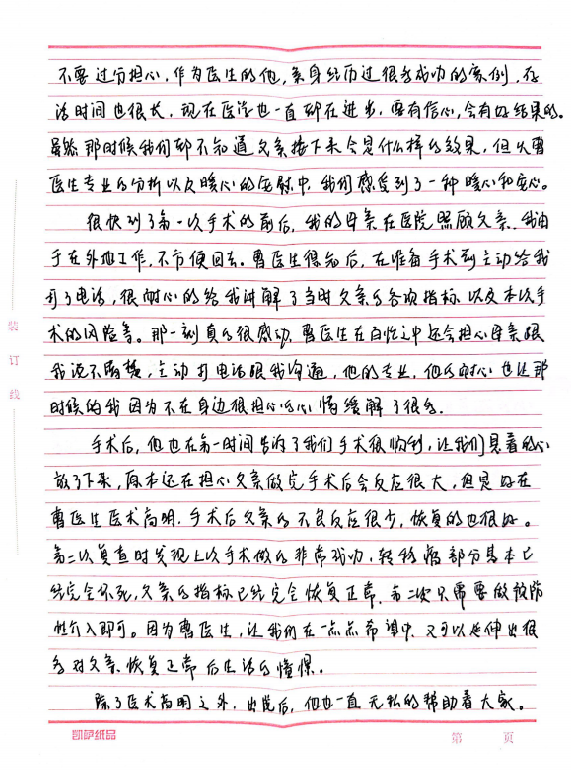 不要过分担心，作为医生的他，亲身经历过很多成功的案例，存
活时间也很长，现在医学也一直都在进步，要有信心，会有好结果的。
虽然那时候我们都不知道父亲接下来会是什么样的效果，但从曹
医生专业的分析以及暖心的安慰中，我们感受到了一种暖心和安心。
很快到了第一次手术的前后，我的母亲在医院照顾父亲，我由
于在外地工作，不方便回去。曹医生得知后，在准备手术前主动给我
打了电话，很耐心的给我讲解了当时父亲的各项指标以及本次手
术的风险等。那一刻真的很感动，曹医生在百忙之中还会担心母亲跟
我说不清楚，主动打电话跟我沟通，他的专业，他的耐心也让那
时候的我因为不在身边很担心的心情缓解了很多。
手术后，他也在第一时间告诉了我们手术很顺利，让我们悬着的心
放了下来，原本还在担心父亲做完手术后会反应很大，但是好在
曹医生医术高明，手术后父亲的不良反应很少，恢复的也很好。
第二次复查时发现上次手术做的非常成功，转移病部分基本已
经完全坏死，父亲的指标已经完全恢复正常，第二次只需要做预防
性介入即可。因为曹医生，让我们在一点点希望中，又可以延伸出很
多对父亲恢复正常后生活的憧憬。
除了医术高明之外，出院后，他也一直无私的帮助着大家。
装
订
线
凯萨纸品
第 页